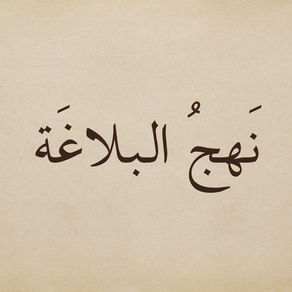 نَهجُ البلاغَة